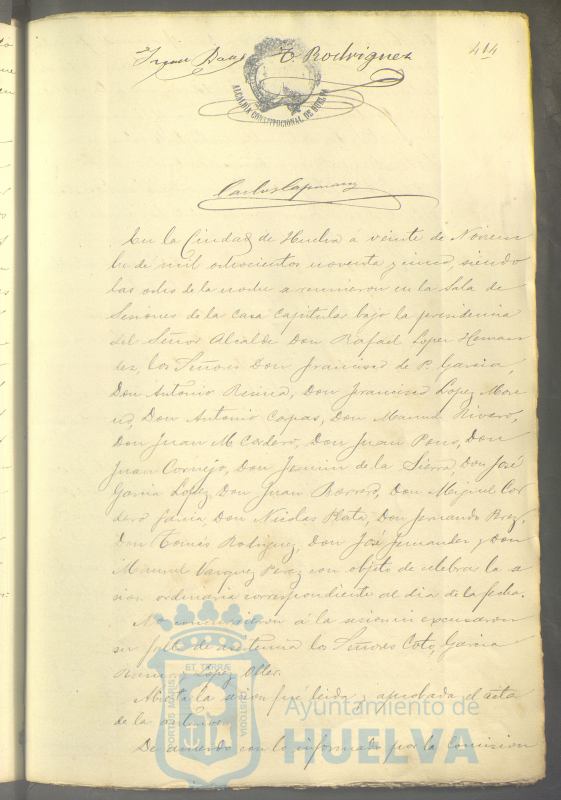 414
Juan Pons T. Rodriguez
ALCALDIA CONSTITUCIONAL DE HUELVA
En la Ciudad de Huelva á veinte de Noviem
bre de mil ochocientos noventa y cinco, siendo
las ocho de la noche se reunieron en la Sala de
Sesiones de la Casa Capitular bajo la presidencia
del Señor Alcalde Don Rafael Lopez Hernan
dez, los Señores Don Francisco de P. Garcia,
Don Antonio Don Francisco Lopez More
no, Don Antonio Don Manuel Rivero,
Don Juan M. Cordero, Don Juan Pons, Don
Juan Cornejo, Don de la Sierra, Don José
Garcia Lopez, Don Juan Borrero, Don Miguel Cor
dero Don Nicolas Plata, Don Fernando Perez,
Don Tomás Rodriguez, Don José Fernandez y Don
Manuel Vazquez Perez con objeto de celebrar la se
sion ordinaria correspondiente al dia de la fecha.
No concurrieron á la sesion y escusaron
su falta de asistencia los Señores Coto, Garcia
y Lopez
Abierta la sesion fué leida y aprobada el acta
de la anterior.
De acuerdo con lo informado por la Comision
ET TERRAE
PORTUS MARIS
CUSTODIA
Ayuntamiento de
HUELVA